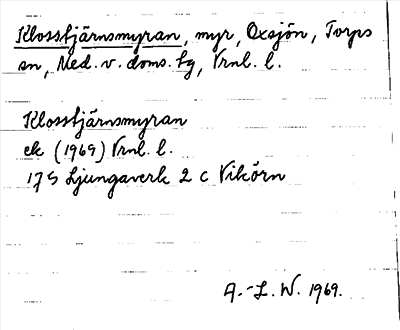 Klosstjärnsmyran, myr, Oxsjön, Torps
sn, Med. v. doms. tg, Vrnl. l.
Klosstjärnsmyran
ek (1969) Vrnl. l.
17 S Ljungaverk 2 c Vikörn
A.-L. W. 1969.